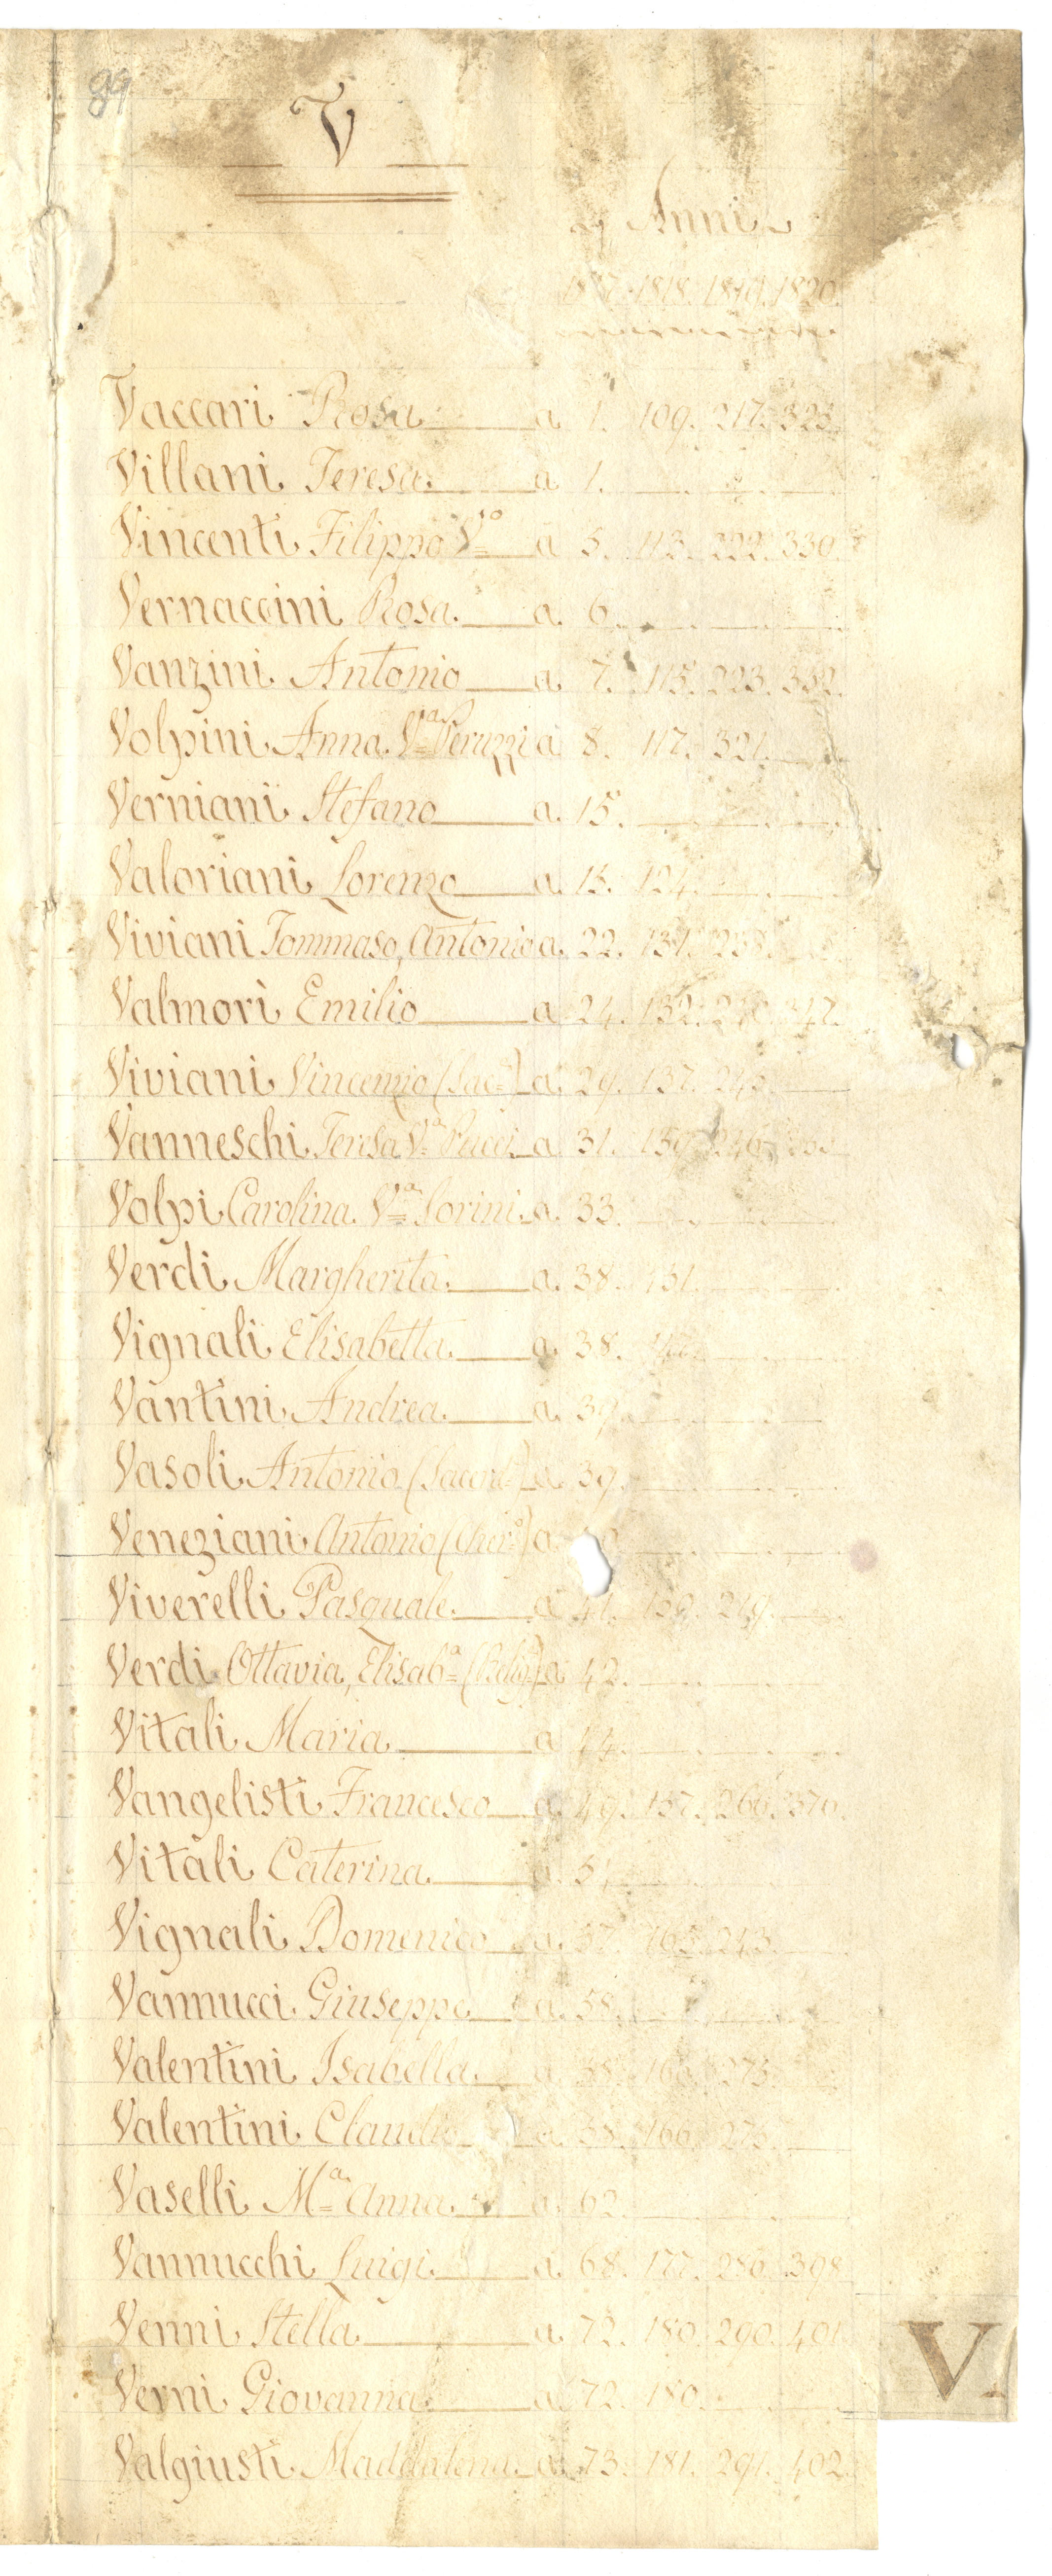 89
V
Anni
1817. 1818. 1819. 1820.
Vaccari Rosa a 1. 109. 217. 323.
Villani Teresa a 1.
Vincenti Filippo V.º a 5. 113. 222. 330.
Vernaccini Rosa a 6.
Vanzini Antonio a 7. 115. 223. 332.
Volpini Anna V.ª Peruzzi a 8. 117. 321.
Verniani Stefano a 15.
Valoriani Lorenzo a 15. 124.
Viviani Tommaso, Antonio a 22. 131.
Valmori Emilio a 24. 132.
Viviani Vincenzio (Sac.) a 29. 137.
Vanneschi Teresa V.ª Pucci a 31. 139. 246.
Volpi Carolina V.ª Sorini a 33.
Verdi Margherita a 38. 151.
Vignali Elisabetta a 38.
Vantini Andrea a 39.
Vasoli Antonio (Sacerd.) a 39.
Veneziani Antonio (Cher.º) a
Viverelli Pasquale a 41. 159. 219.
Verdi Ottavia, Elisab.ª (Relig.) a 42.
Vitali Maria a 44.
Vangelisti Francesco a 49. 157. 266. 376.
Vitali Caterina a 51.
Vignali Domenico a 57. 165. 243.
Vannucci Giuseppe a 58.
Valentini Isabella a 58. 166. 275.
Valentini Claudio a 58. 166. 275.
Vaselli M.ª Anna a 62.
Vannucchi Luigi a 68. 177. 286. 398.
Venni Stella a 72. 180. 290. 401.
Verni Giovanna a 72. 180.
Valgiusti Maddalena a 73. 181. 291. 402.
V.